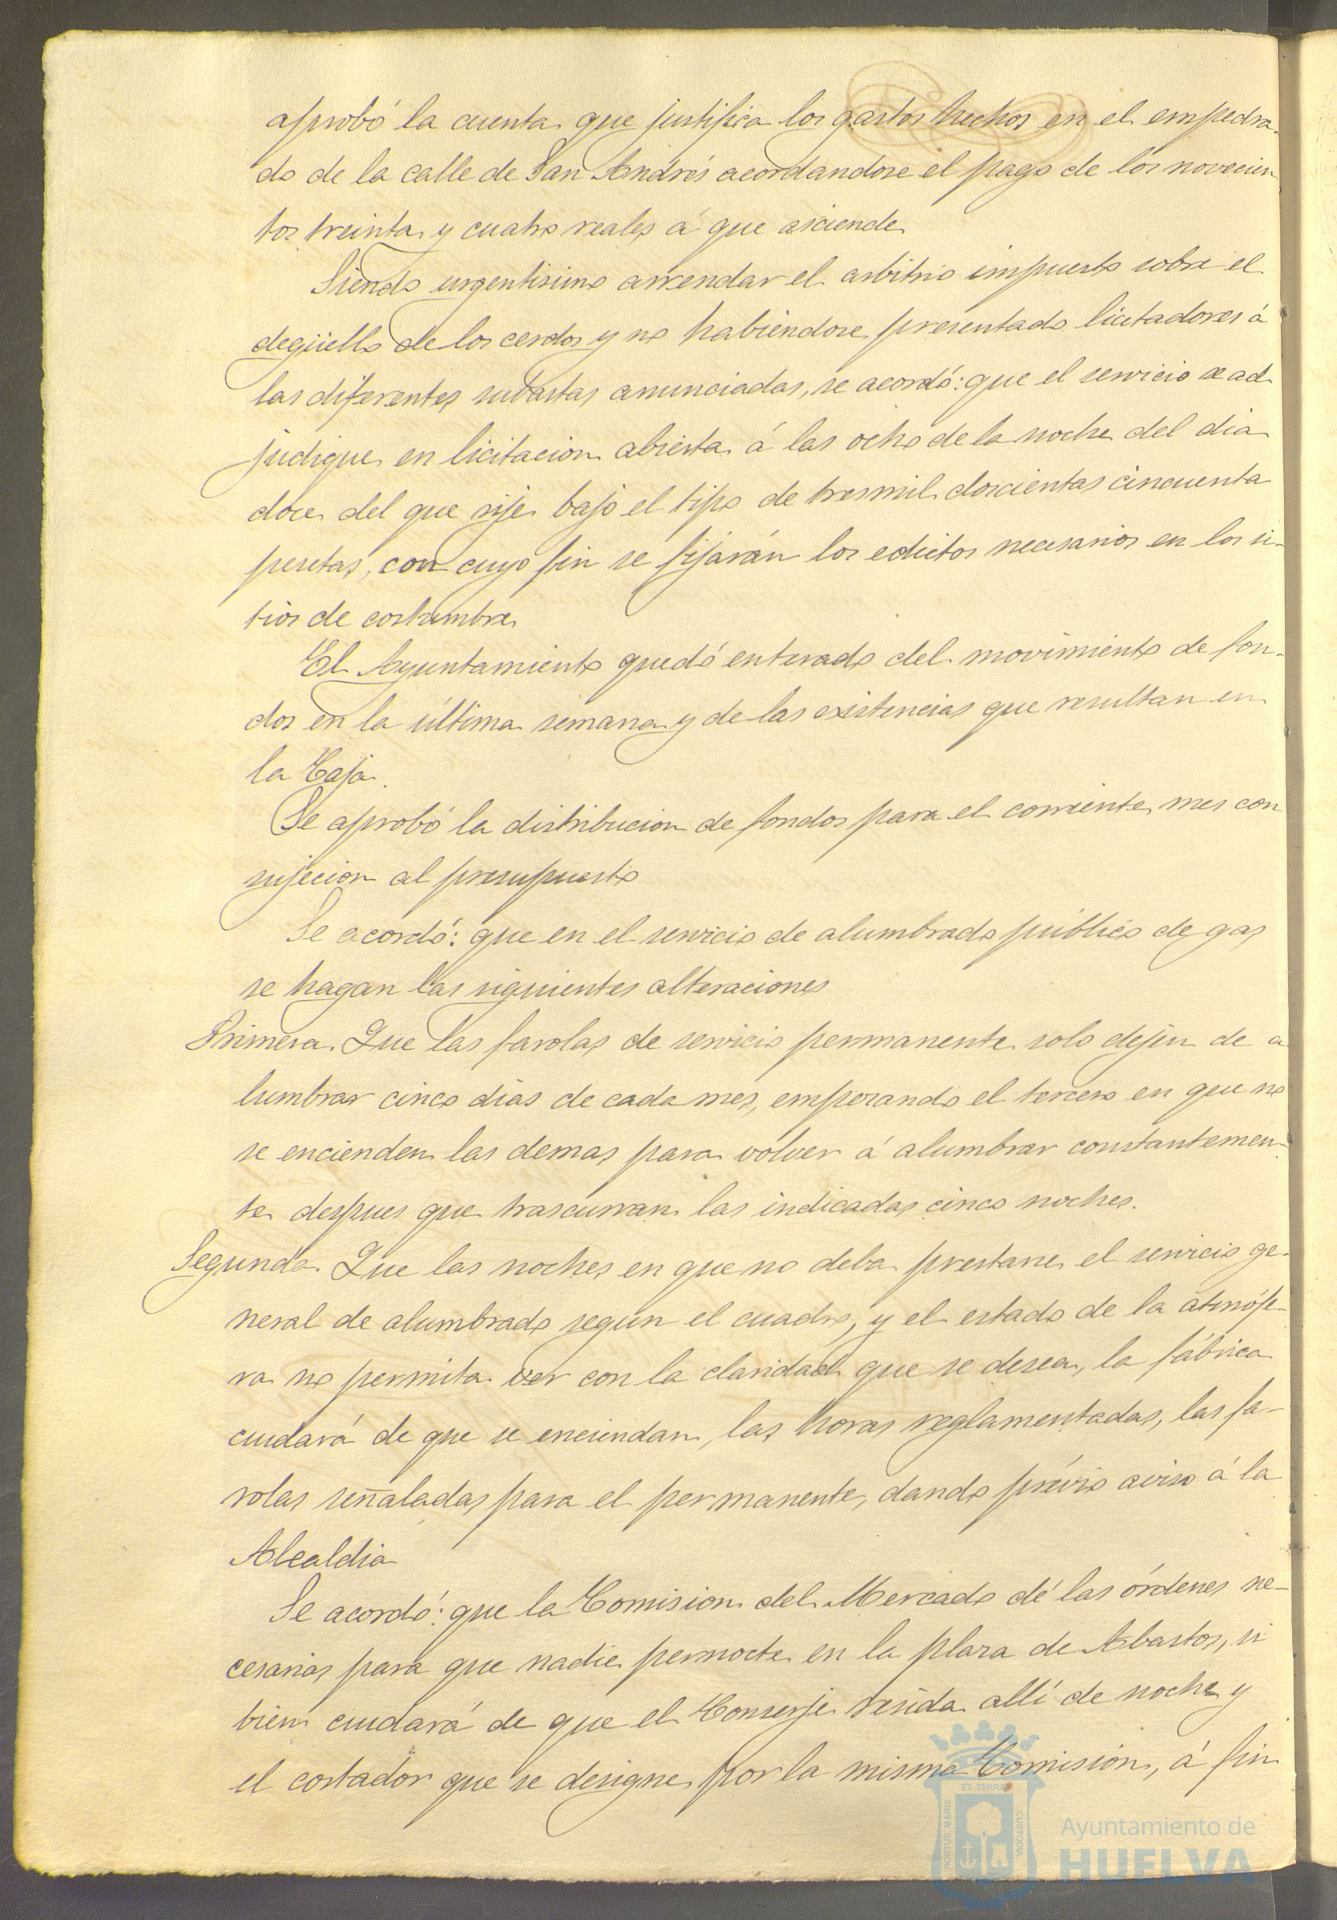 aprobó la cuenta que justifica los gastos hechos en el empedra-
do de la calle de San Andrés acordandose el pago de los novecien
tos treinta y cuatro reales á que asciende
Siendo urgentisimo arrendar el arbitrio impuesto sobre el
degüello de los cerdos y no habiendose presentado licitadores á
las diferentes subastas anunciadas, se acordó: que el servicio se ad
judique en licitacion abierta á las ocho de la noche del dia
doce del que rije bajo el tipo de tresmil doscientas cincuenta
pesetas, con cuyo fin se fijarán los edictos necesarios en los si-
tios de costumbre
El Ayuntamiento quedó enterado del movimiento de fon-
dos en la última semana y de las existencias que resultan en
la Caja.
Se aprobó la distribucion de fondos para el corriente mes con
sujecion al presupuesto
Se acordó: que en el servicio de alumbrado público de gas
se hagan las siguientes alteraciones
Primera. Que las farolas de servicio permanente solo dejen de a
lumbrar cinco dias de cada mes, empezando el tercero en que no
se encienden las demas para volver á alumbrar constantemen-
te despues que trascurran las indicadas cinco noches.
Segunda. Que las noches en que no deba prestarse el servicio ge-
neral de alumbrado segun el cuadro, y el estado de la atmósfe-
ra no permita ver con la claridad que se desea, la fábrica
cuidará de que se enciendan, las horas reglamentadas, las fa-
rolas señaladas para el permanente, dando prévio aviso á la
Alcaldia
Se acordó: que la Comision del Mercado dé las órdenes ne-
cesarias para que nadie pernocte en la plaza de Abastos, si
bien cuidará de que el Conserje resida allí de noche y
el cortador que se designe por la misma Comisión, á fin
PORTUS MARIS
ET TERRAE
CUSTODIA
Ayuntamiento de
HUELVA